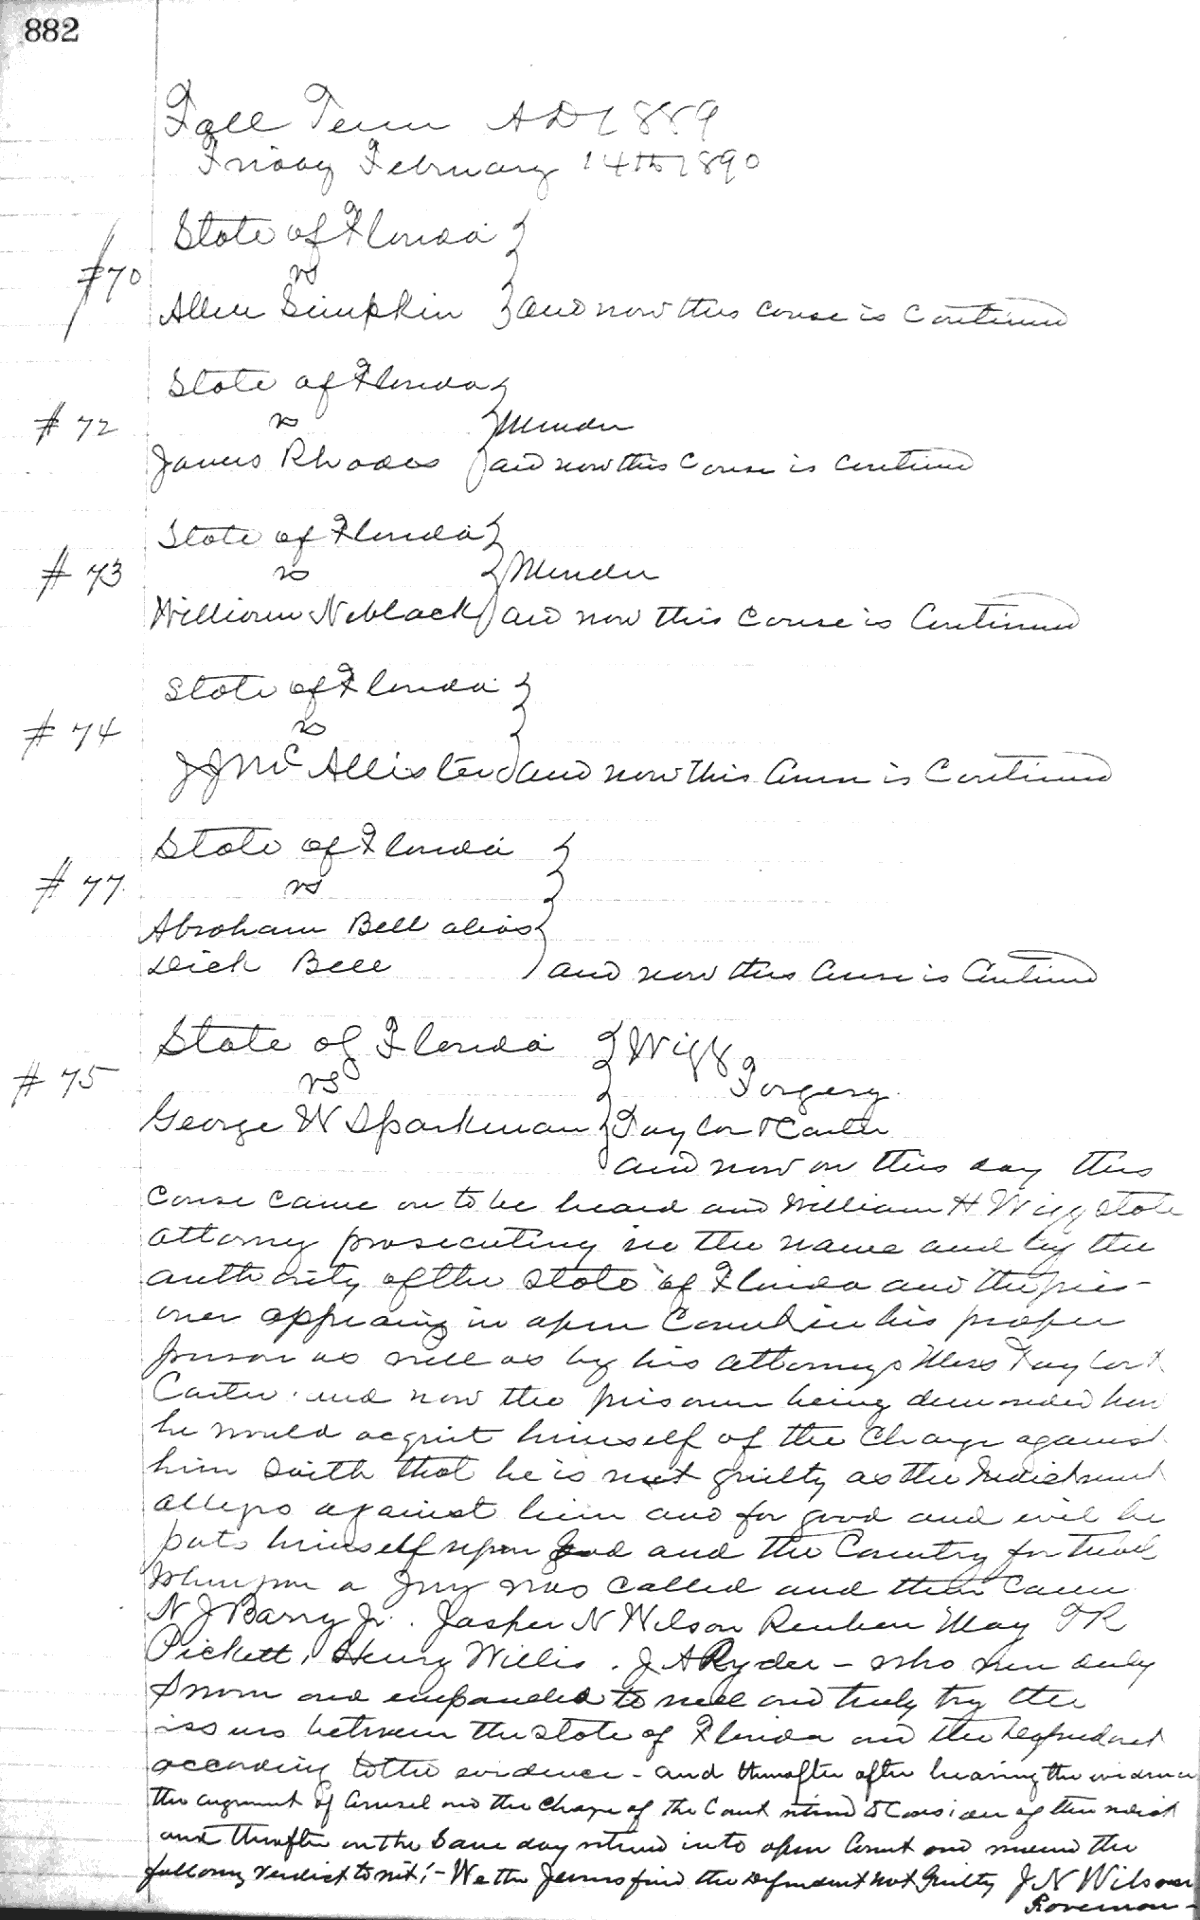 882
Fall Term AD 1889
Friday February 14th 1890
State of Florida
#70
vs
Allen Simpkin and now this cause is Continued
State of Florida
#72
vs
Murder
James Rhodes and now this Cause is continued
State of Florida
#73
vs
Murder
William Neblack and now this cause is Continued
State of Florida
#74
vs
J J McAllister and now this Cause is Continued
State of Florida
#77
vs
Abraham Bell alias
Dick Bell and now this Cause is Continued
State of Florida Wigg
#75
vs
Forgery
George W Sparkman Taylor & Carter
and now on this day this
cause came on to be heard and William H Wigg State
attorney prosecuting in the name and by the
authority of the State of Florida and the pris-
oner appearing in open Court in his proper
person as well as by his attorneys Mess Taylor &
Carter. and now the prisoner being demanded how
he would acquit himself of the Charge against
him saith that he is not guilty as the Indictment
alleges against him and for good and evil he
puts himself upon God and the Country for trial
Whereupon a Jury was called and then came
N J Barry Jr. Jasper N Wilson Reuben May T R
Pickett, Henry Willis. J A Ryder - who were duly
Sworn and empanelled to well and truly try the
issues between the State of Florida and the Defendant
according to the evidence - and thereafter after hearing the evidence
the argument of Counsel and the charge of the Court retired to Consider of their verdict
and thereafter on the Same day returned into open Court and the
following verdict to wit:- We the Jurors find the Defendant not Guilty J N Wilson
Foreman -